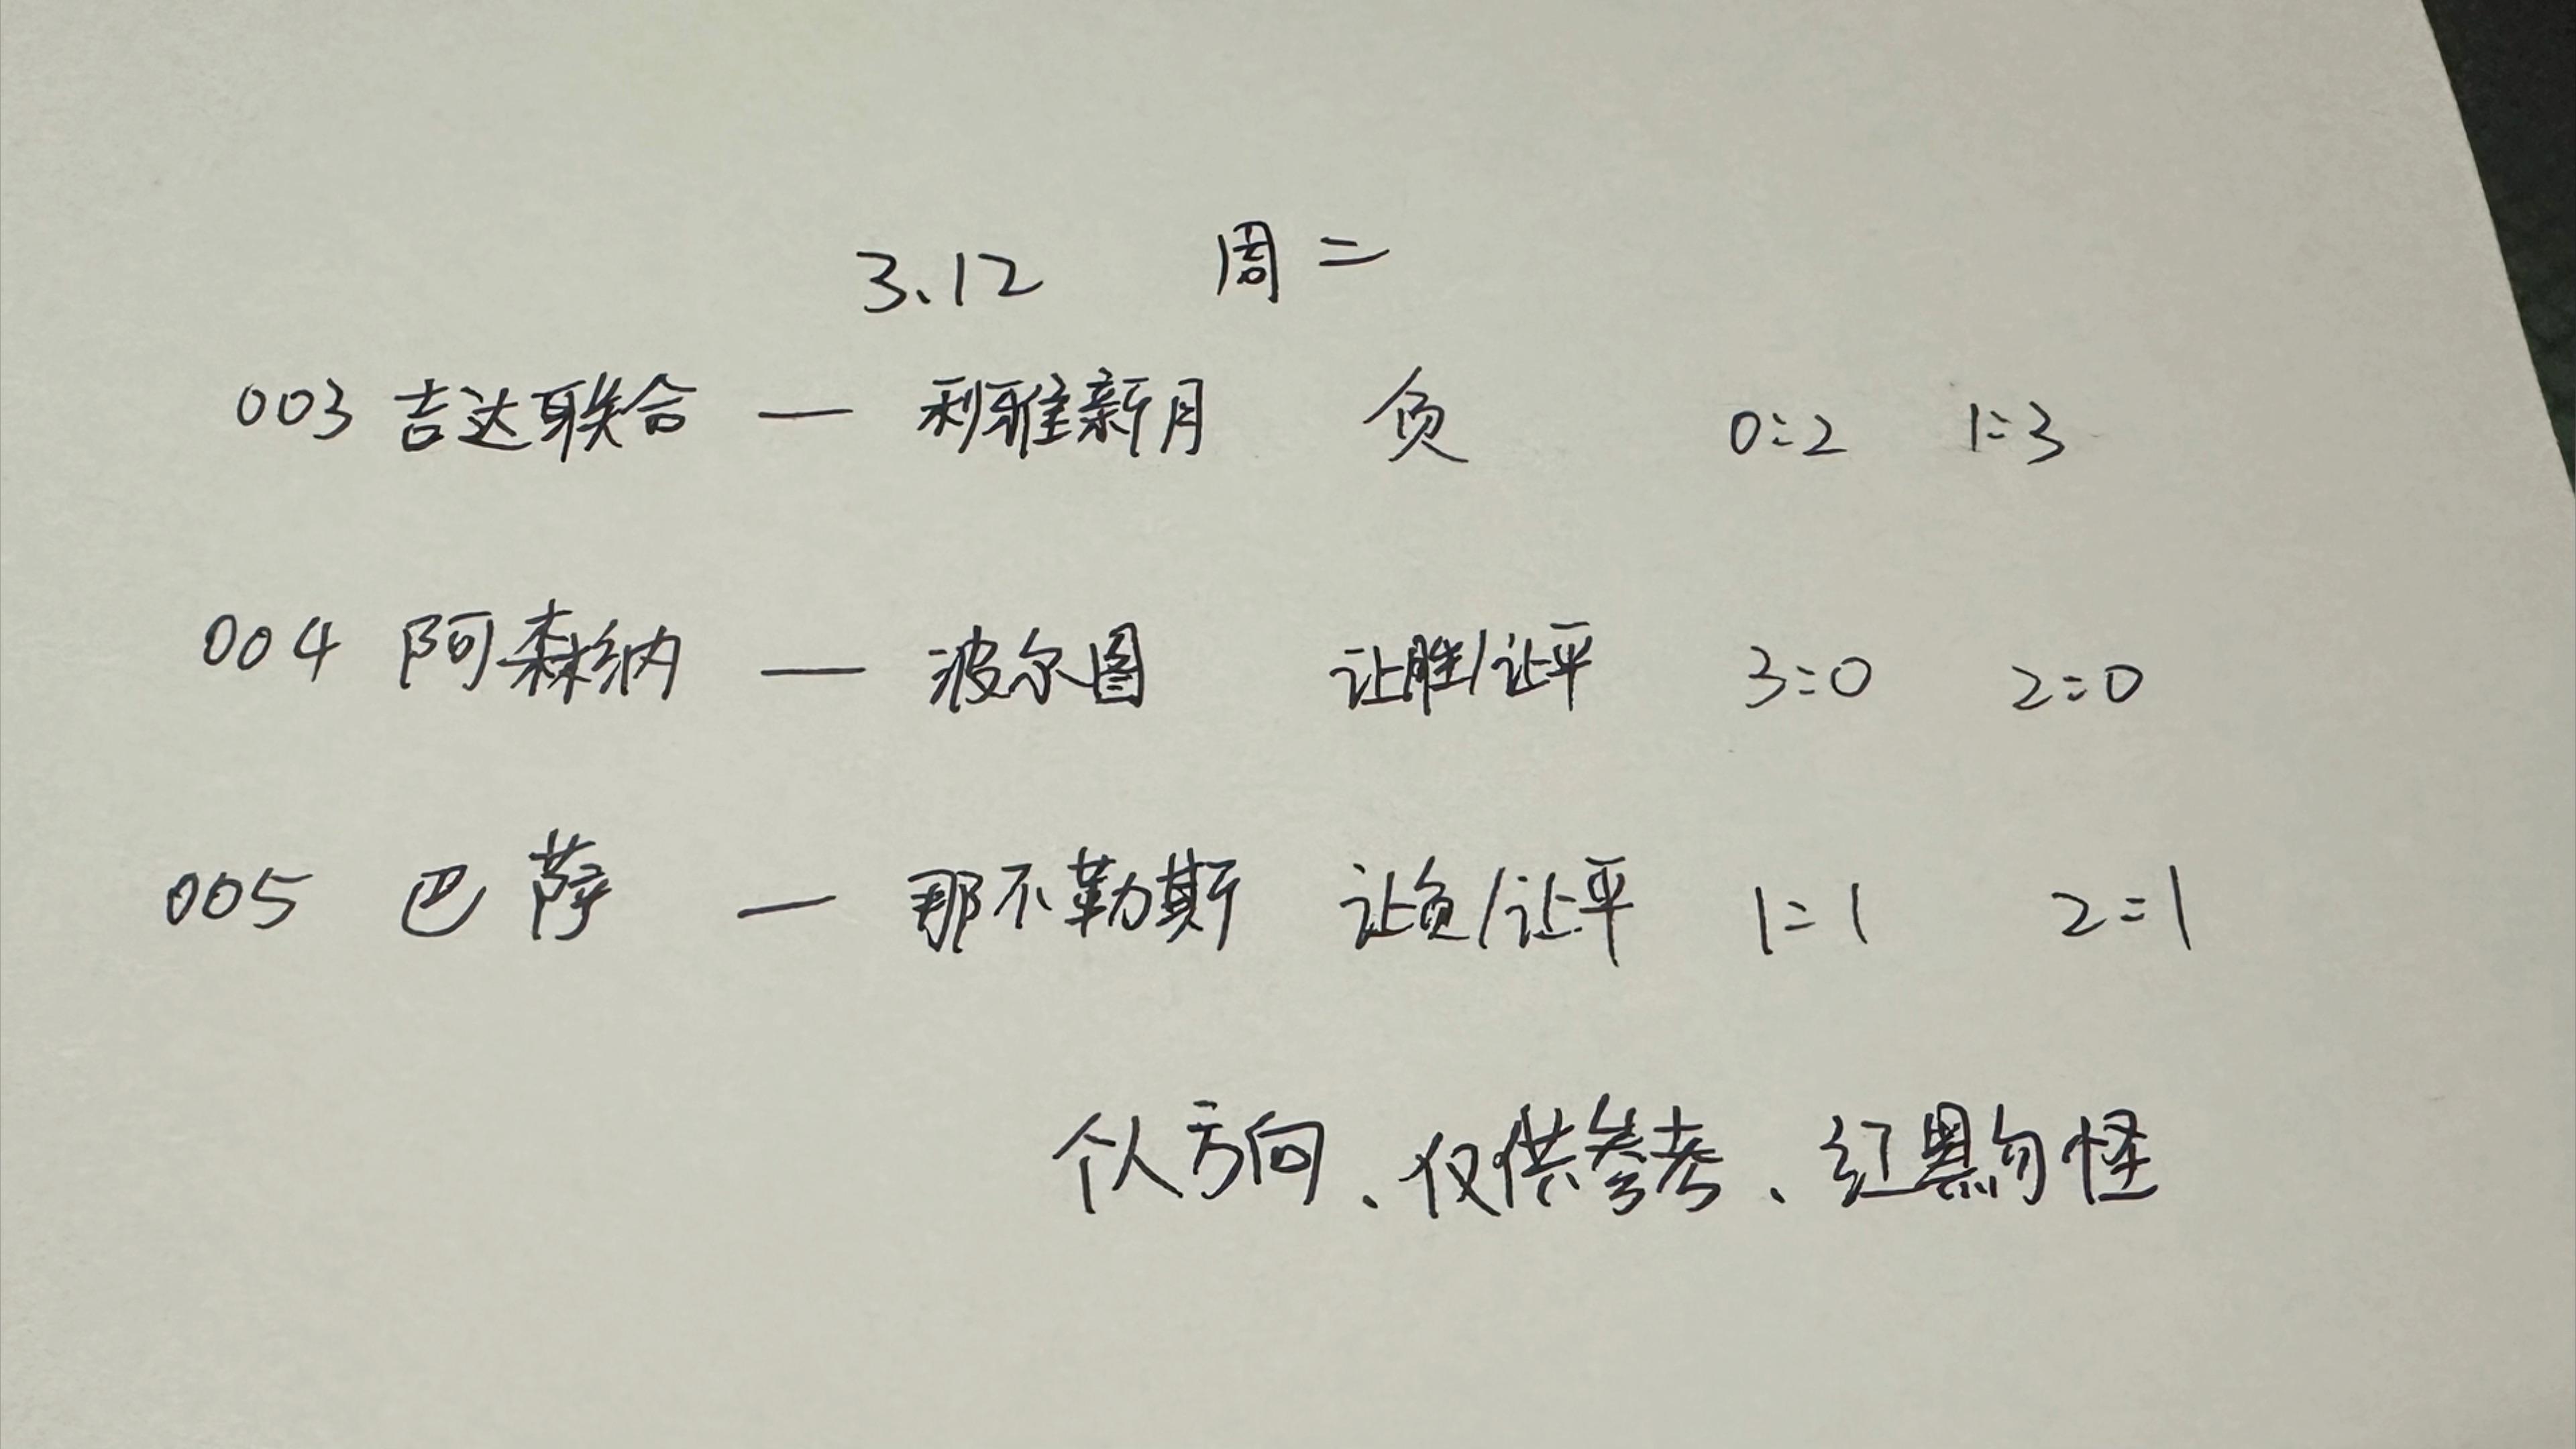 3.12 周二
003 吉达联合 — 利雅新月 负 0:2 1:3
004 阿森纳 — 波尔图 让胜/让平 3:0 2:0
005 巴萨 — 那不勒斯 让负/让平 1:1 2:1
个人方向、仅供参考、红黑勿怪